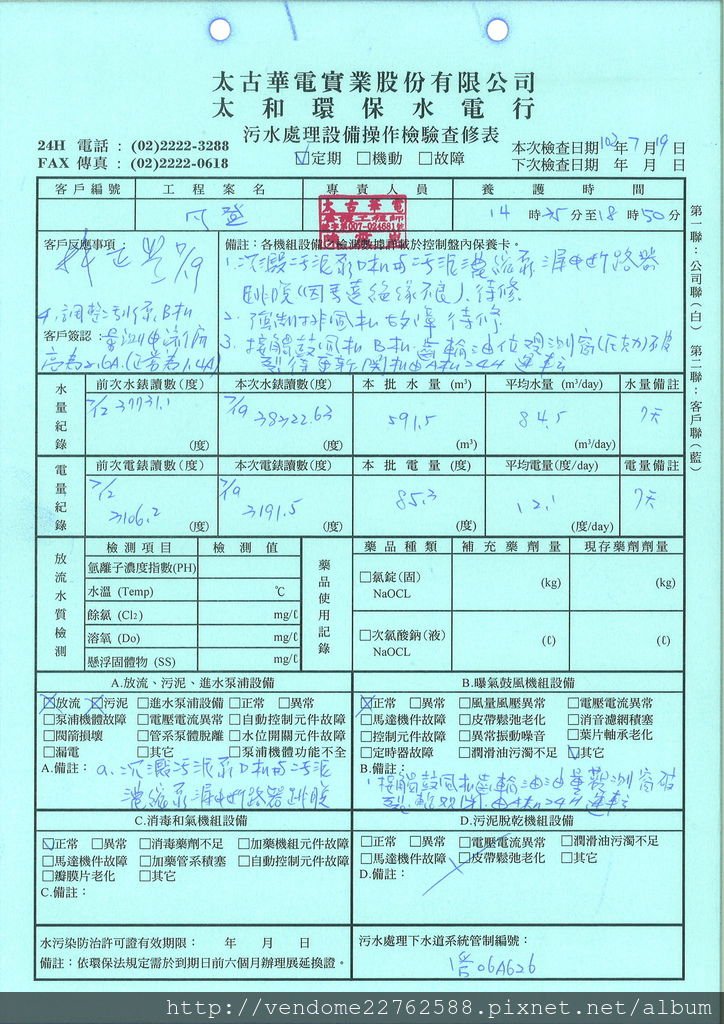 太古華電實業股份有限公司
太和環保水電行
污水處理設備操作檢驗查修表
24H 電話：(02)2222-3288
FAX 傳真：(02)2222-0618
☑定期 □機動 □故障
本次檢查日期 102年7月19日
下次檢查日期 年 月 日
客戶編號 工程案名 專責人員 養護時間
太古華電
14時35分至18時50分
客戶反應事項：
7/19
備註：各機組設備之檢測數據詳載於控制盤內保養卡。
1.沉澱污泥泵D機與污泥濃縮泵漏電斷路器
跳脫(因馬達絕緣不良)、待修
2.強制排風機故障待修
3.接觸鼓風機B機齒輪油位觀測窗
4.調整污泥泵B機
客戶簽認：
高為2.6A(正常為1.4A)
第一聯：公司聯(白) 第二聯：客戶聯(藍)
水量紀錄
前次水錶讀數(度) 本次水錶讀數(度) 本批水量(m³) 平均水量(m³/day) 水量備註
7/12 37731.1 (度)
7/19 38322.63 (度)
591.5 (m³)
84.5 (m³/day)
7天
電量紀錄
前次電錶讀數(度) 本次電錶讀數(度) 本批電量(度) 平均電量(度/day) 電量備註
7/12 3106.2 (度)
7/19 3191.5 (度)
85.3 (度)
12.1 (度/day)
7天
放流水質檢測
檢測項目 檢測值
氫離子濃度指數(PH)
水溫 (Temp) ℃
餘氯 (Cl2) mg/ℓ
溶氧 (Do) mg/ℓ
懸浮固體物 (SS) mg/ℓ
藥品使用記錄
藥品種類 補充藥劑量 現存藥劑劑量
□氯錠(固) NaOCL (kg) (kg)
□次氯酸鈉(液) NaOCL (ℓ) (ℓ)
A.放流、污泥、進水泵浦設備
☑放流 ☑污泥 □進水泵浦設備 □正常 □異常
□泵浦機體故障 □電壓電流異常 □自動控制元件故障
□閥箭損壞 □管系系體脫離 □水位開關元件故障
□漏電 □其它 □泵浦機體功能不全
A.備註：a.沉澱污泥泵D機與污泥
濃縮泵漏電斷路器跳脫
B.曝氣鼓風機組設備
☑正常 □異常 □風量風壓異常 □電壓電流異常
□馬達機件故障 □皮帶鬆弛老化 □消音濾網積塞
□控制元件故障 □異常振動噪音 □葉片軸承老化
□定時器故障 □潤滑油污濁不足 ☑其它
B.備註：
1.接觸鼓風機齒輪油油量觀測窗破
C.消毒和氣機組設備
☑正常 □異常 □消毒藥劑不足 □加藥機組元件故障
□馬達機件故障 □加藥管系積塞 □自動控制元件故障
□瓣膜片老化 □其它
C.備註：
D.污泥脫乾機組設備
□正常 □異常 □電壓電流異常 □潤滑油污濁不足
□馬達機件故障 □皮帶鬆弛老化 □其它
D.備註：
水污染防治許可證有效期限： 年 月 日
備註：依環保法規定需於到期日前六個月辦理展延換證。
污水處理下水道系統管制編號：
06A626
http://vendome22762588.pixnet.net/album